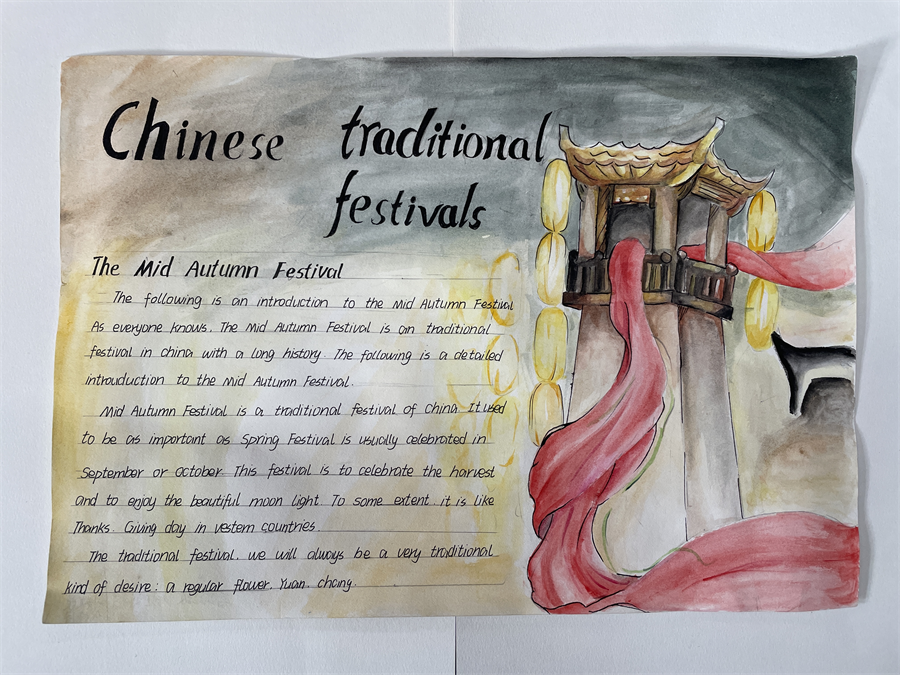 Chinese traditional
festivals
The Mid Autumn Festival
The following is an introduction to the Mid Autumn Festival
As everyone knows. The Mid Autumn Festival is an traditional
festival in china with a long history. The following is a detailed
introuduction to the Mid Autumn Festival.
Mid Autumn Festival is a traditional festival of China. It used
to be as important as Spring Festival is usually celebrated in
September or October. This festival is to celebrate the harvest
and to enjoy the beautiful moon light. To some extent. it is like
Thanks. Giving day in vestern countries
The traditional festival. we will always be a very traditional
kind of desire: a regular flower. Yuan. chang.